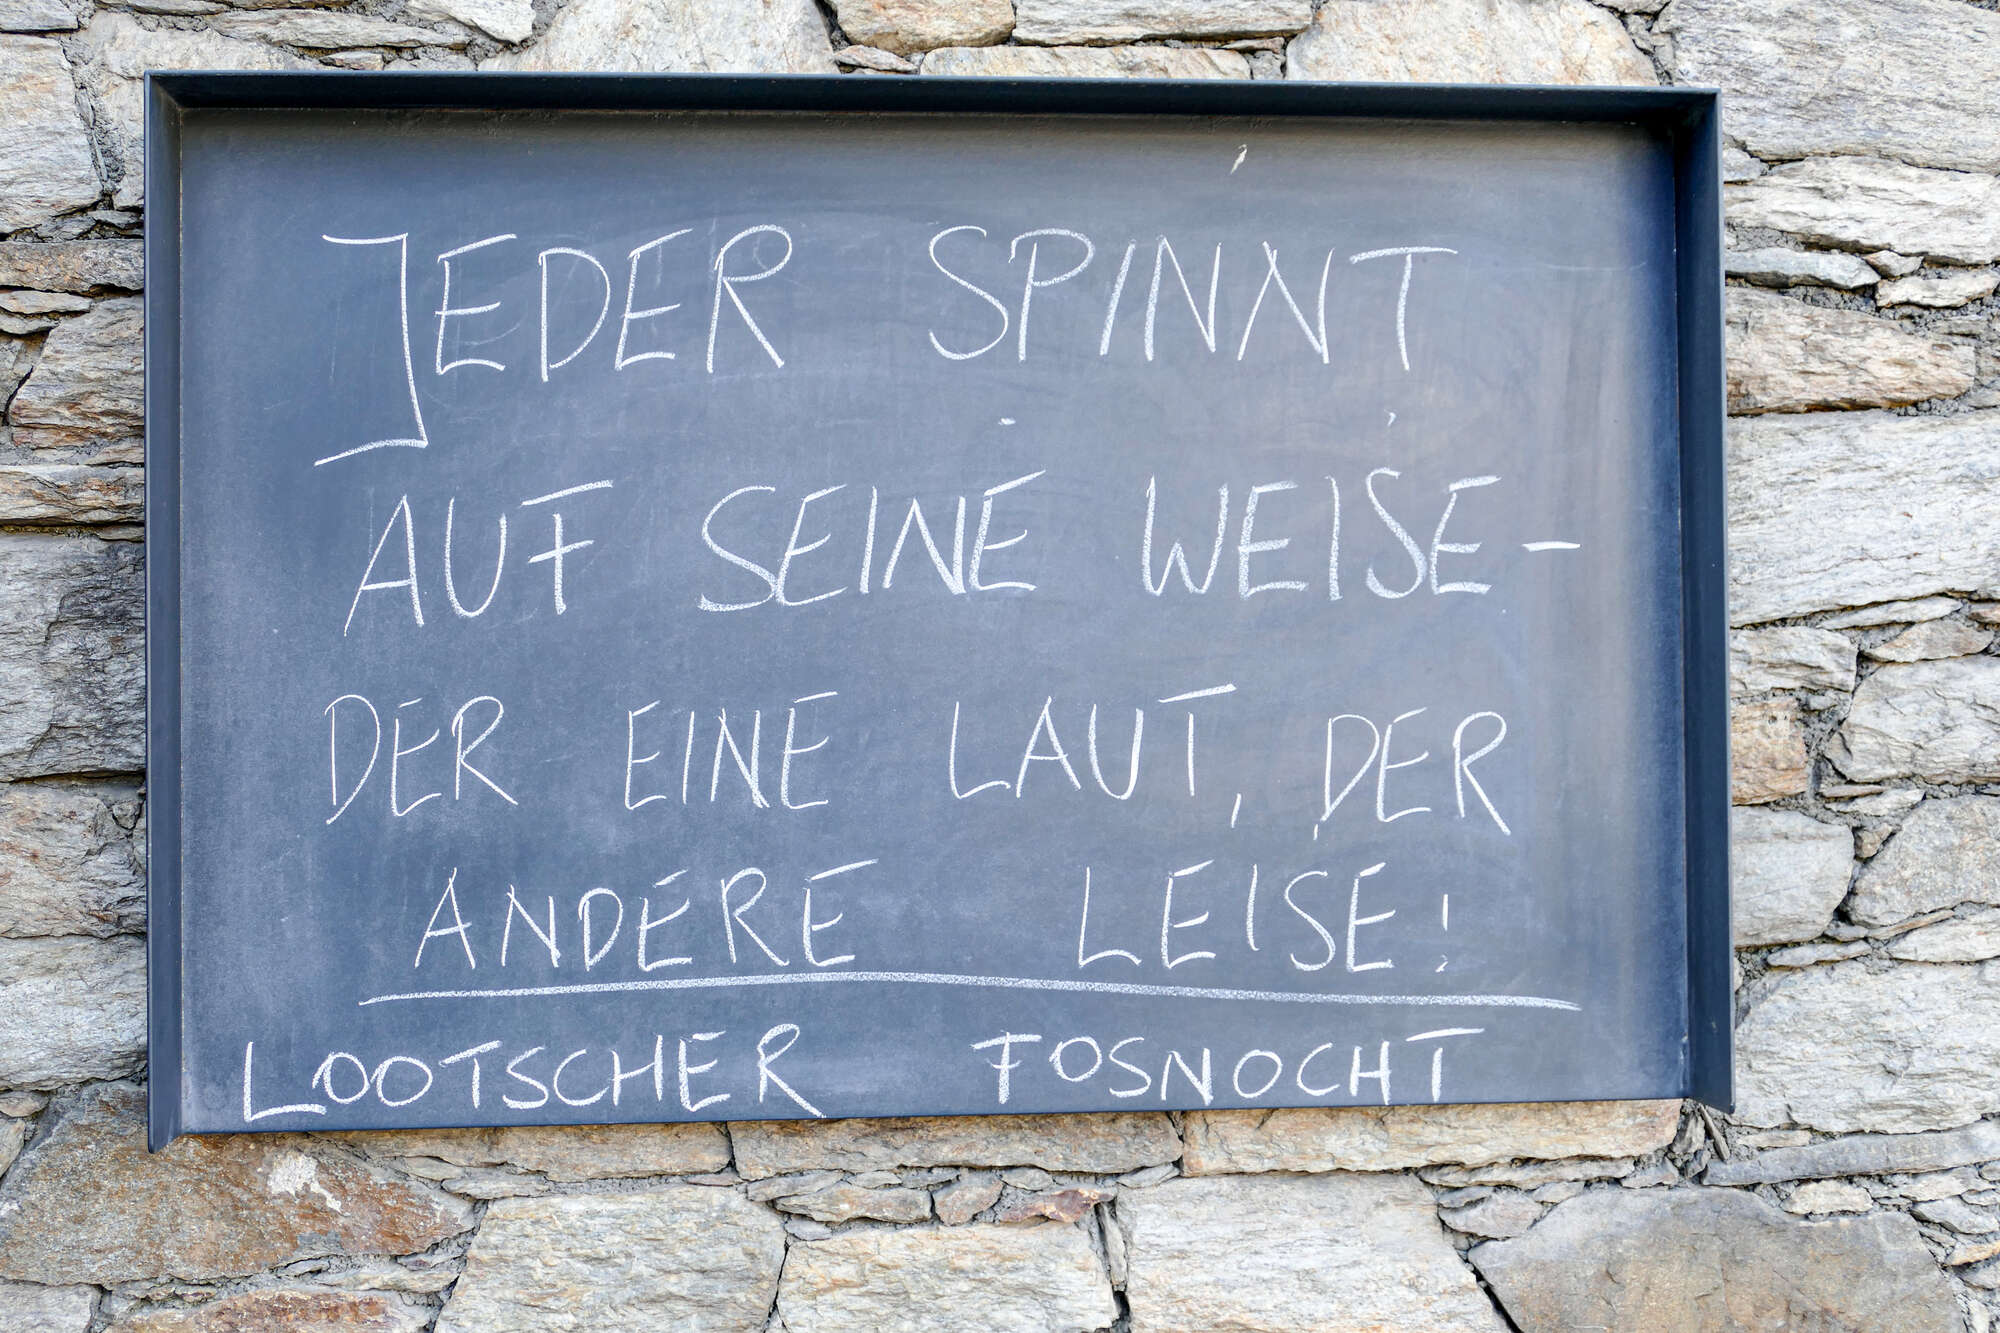 JEDER SPINNT
AUF SEINE WEISE -
DER EINE LAUT, DER
ANDERE LEISE!
LOOTSCHER FOSNOCHT